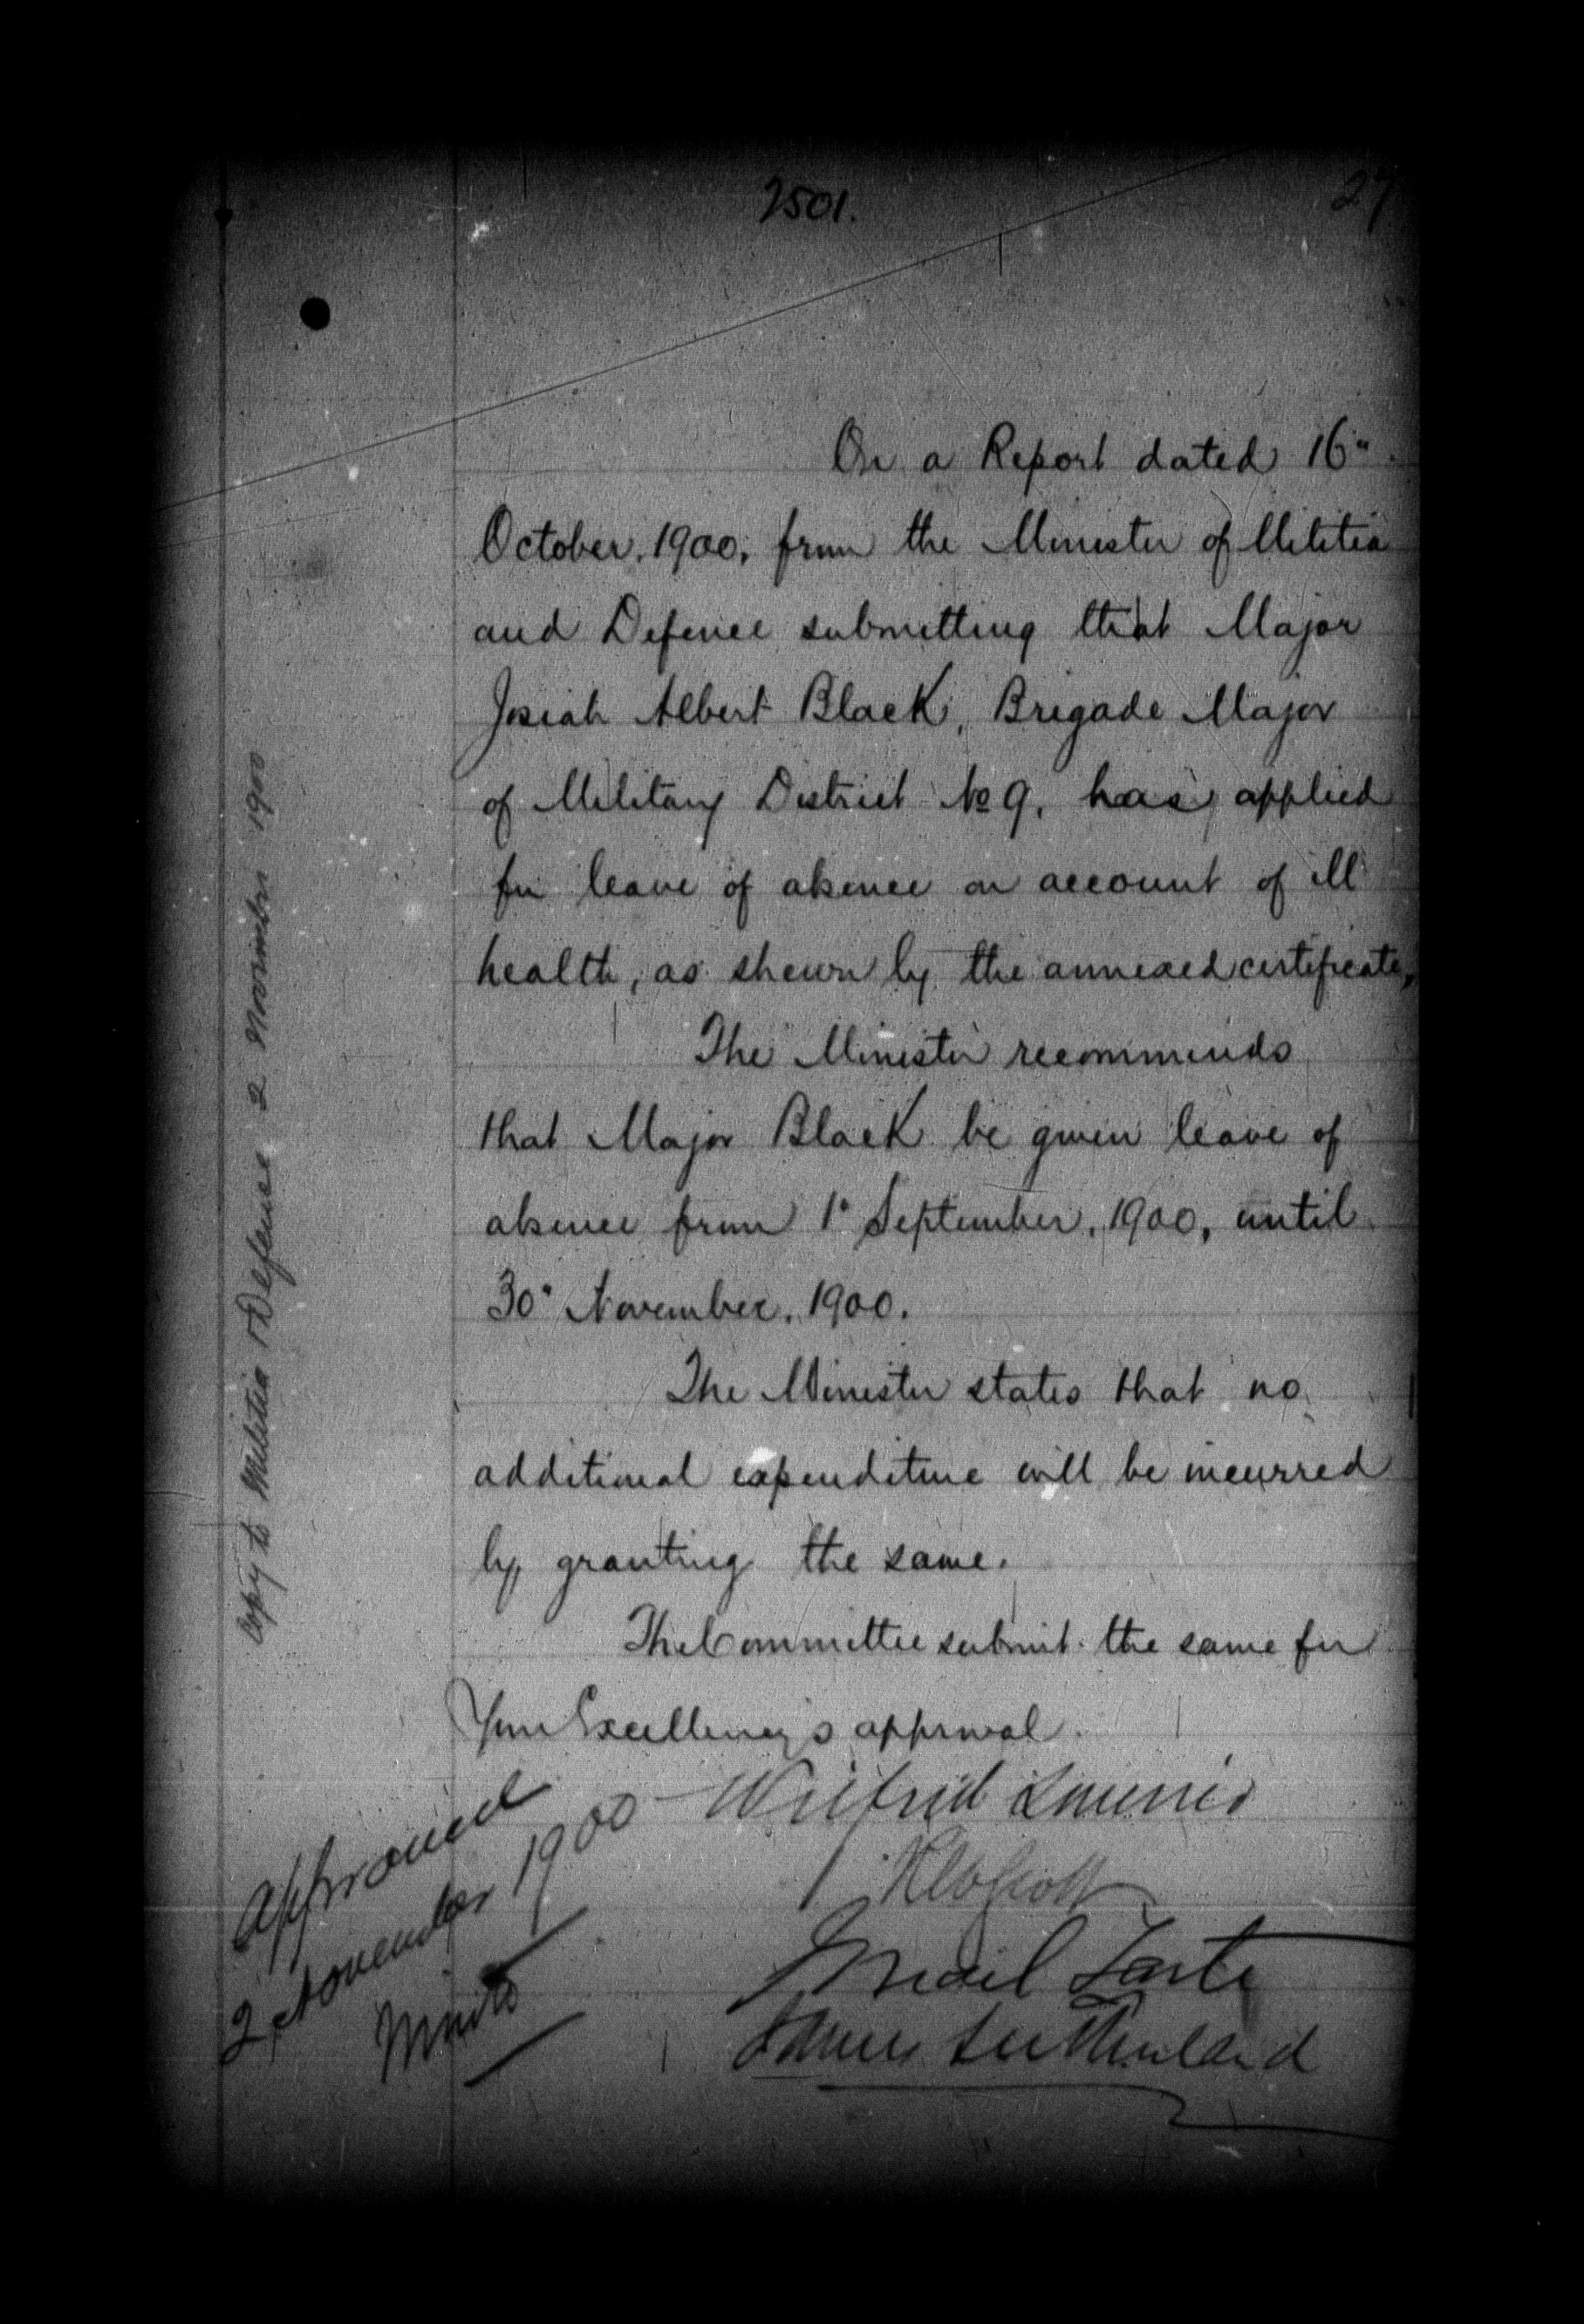 2501.
27
On a Report dated 16"
October, 1900, from the Minister of Militia
and Defence submitting that Major
Josiah Albert Black, Brigade Major
of Military District No 9, has applied
for leave of absence on account of ill
health, as shewn by the annexed certificate,
The Minister recommends
that Major Black be given leave of
absence from 1" September, 1900, until
30" November, 1900.
The Minister states that no
additional expenditure will be incurred
by granting the same.
The Committee submit the same for
Your Excellency's approval.
Wilfrid Laurier
RWScott
J Israel Tarte
James Sutherland
Approved
2 November 1900
Minto
Copy to Militia & Defence 2 November 1900